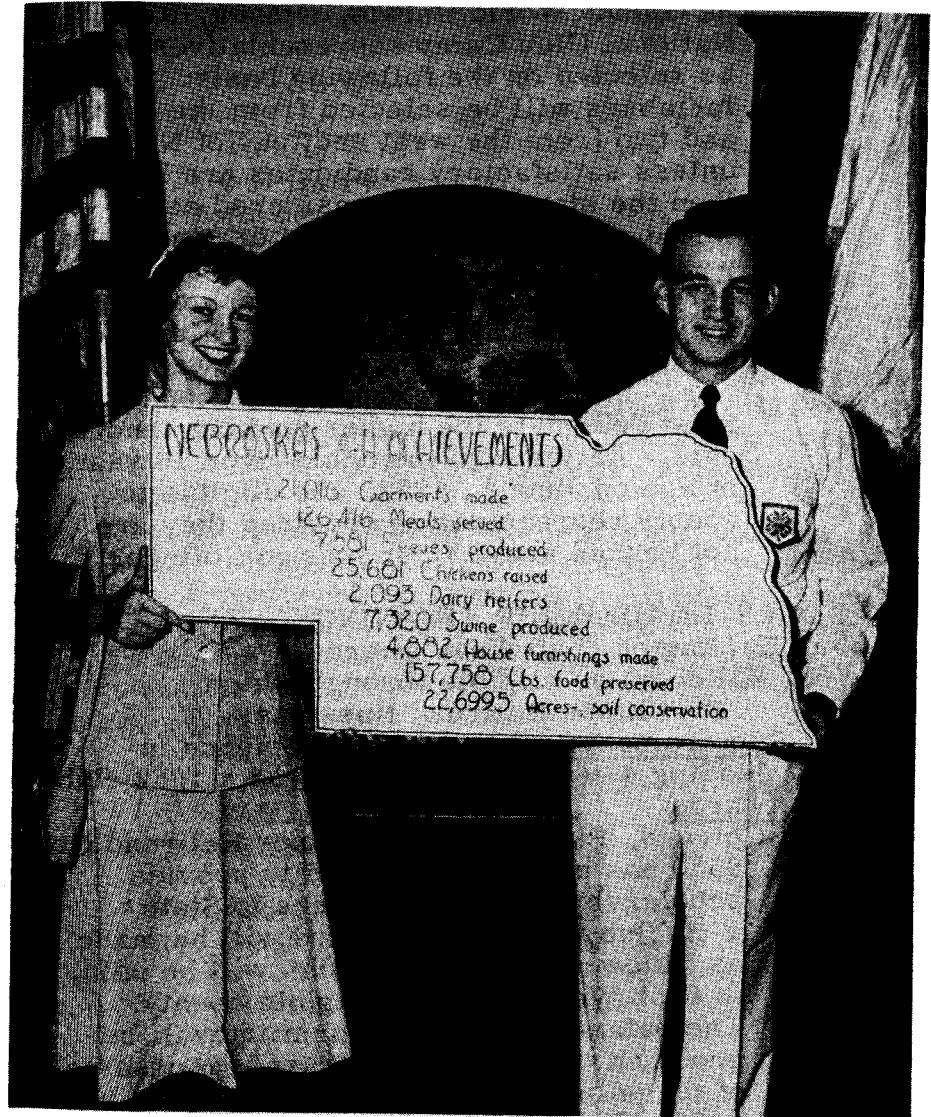 NEBRASKA'S 4-H ACHIEVEMENTS
21,016 Garments made
126,416 Meals served
7,581 Beeves produced
25,681 Chickens raised
2,093 Dairy heifers
7,320 Swine produced
4,882 House furnishings made
157,758 Lbs. food preserved
22,6995 Acres-, soil conservation